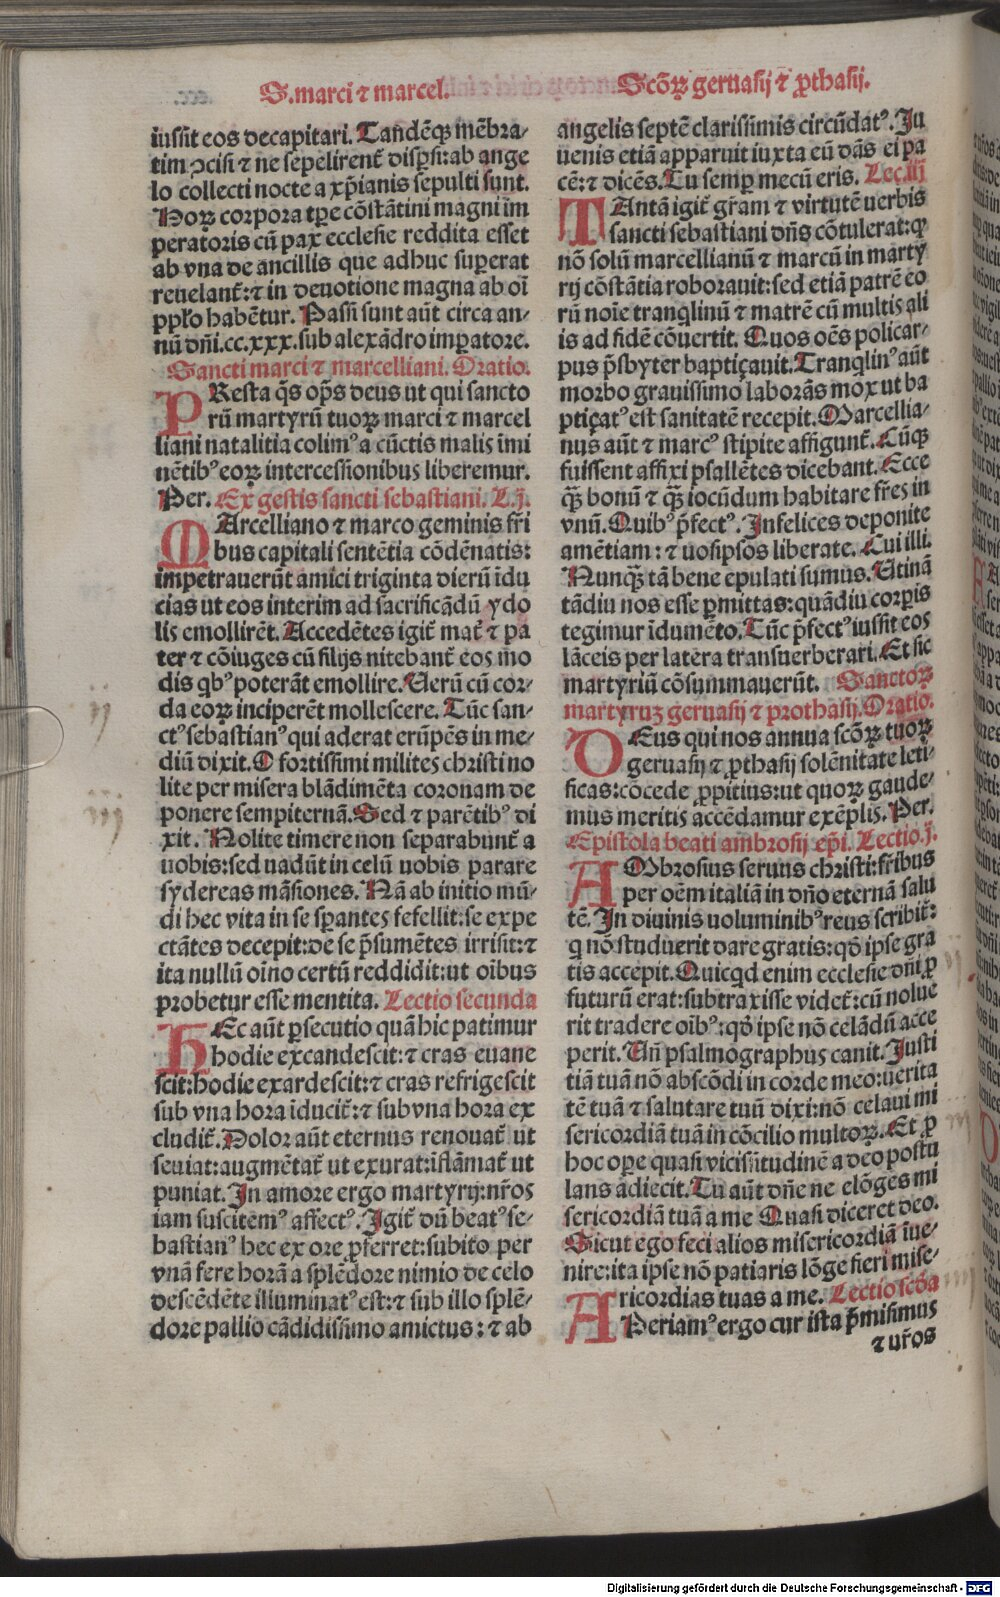 S. marci ⁊ marcel.
Scōꝝ geruasij ⁊ ꝓthasij.
iussit eos decapitari. Tandēqꝫ mēbra-
tim ↄcisi ⁊ ne sepelirent᷑ disꝑsi: ab ange
lo collecti nocte a xp̄ianis sepulti sunt.
Hoꝝ corpora tꝑe cōstātini magni im
peratoris cū pax ecclesie reddita esset
ab vna de ancillis que adhuc superat
reuelant᷑: ⁊ in deuotione magna ab oī
ppło habētur. Passi sunt aūt circa an-
nū dn̄i .cc.xxx. sub alexādro imꝑatore.
Sancti marci ⁊ marcelliani. Oratio.
PResta q̄s op̄s deus ut qui sancto
rū martyrū tuoꝝ marci ⁊ marcel
liani natalitia colimꝰ a cūctis malis imi
nētibꝰ eoꝝ intercessionibus liberemur.
Per. Ex gestis sancti sebastiani. L.j.
MArcelliano ⁊ marco geminis fri
bus capitali sentētia cōdēnatis:
impetrauerūt amici triginta dierū īdu
cias ut eos interim ad sacrificādū ydo
lis emollirēt. Accedētes igit᷑ mat᷑ ⁊ pa
ter ⁊ cōiuges cū filijs nitebant᷑ eos mo
dis qbꝰ poterāt emollire. Uerū cū cor-
da eoꝝ inciperēt mollescere. Tūc san-
ctꝰ sebastianꝰ qui aderat erūpēs in me-
diū dixit. O fortissimi milites christi no
lite per misera blādimēta coronam de
ponere sempiternā. Sed ⁊ parētibꝰ di
xit. Nolite timere non separabunt᷑ a
uobis: sed uadūt in celū uobis parare
sydereas māsiones. Nā ab initio mū-
di hec vita in se sꝑantes fefellit: se expe
ctātes decepit: de se p̄sumētes irrisit: ⁊
ita nullū oīno certū reddidit: ut oībus
probetur esse mentita. Lectio secunda
HEc aūt ꝑsecutio quā hic patimur
hodie excandescit: ⁊ cras euane
scit: hodie exardescit: ⁊ cras refrigescit
sub vna hora īducit᷑: ⁊ sub vna hora ex
cludit᷑. Dolor aūt eternus renouat᷑ ut
seuiat: augmētat᷑ ut exurat: īflāmat᷑ ut
puniat. In amore ergo martyrij: nr̄os
iam suscitemꝰ affectꝰ. Igit᷑ dū beatꝰ se-
bastianꝰ hec ex ore ꝓferret: subito per
vnā fere horā a splēdore nimio de celo
descēdēte illuminatꝰ est: ⁊ sub illo splē-
dore pallio cādidissimo amictus: ⁊ ab
angelis septē clarissimis circūdatꝰ. Ju
uenis etiā apparuit iuxta eū dās ei pa
cē: ⁊ dicēs. Tu semꝑ mecū eris. Lec.iij
TAntā igit᷑ gr̄am ⁊ virtutē uerbis
sancti sebastiani dn̄s cōtulerat: qꝫ
nō solū marcellianū ⁊ marcū in marty
rij cōstātia roborauit: sed etiā patrē eo
rū noīe tranqlinū ⁊ matrē cū multis ali
is ad fidē cōuertit. Quos oēs policar-
pus p̄sbyter baptiçauit. Tranqlinꝰ aūt
morbo grauissimo laborās mox ut ba
ptiçatꝰ est sanitatē recepit. Marcellia-
nus aūt ⁊ marcꝰ stipite affigunt᷑. Cūqꝫ
fuissent affixi psallētes dicebant. Ecce
qꝫ̄ bonū ⁊ qꝫ̄ iocūdum habitare fr̄es in
vnū. Quibꝰ p̄fectꝰ. Infelices deponite
amētiam: ⁊ uosipsos liberate. Cui illi.
Nunqꝫ̄ tā bene epulati sumus. Utinā
tādiu nos esse ꝑmittas: quādiu corꝑis
tegimur īdumēto. Tūc p̄fectꝰ iussit eos
lāceis per latera transuerberari. Et sic
martyriū cōsummauerūt. Sanctoꝝ
martyruꝫ geruasij ⁊ prothasij. Oratio.
DEus qui nos annua scōꝝ tuoꝝ
geruasij ⁊ ꝓthasij solēnitate leti-
ficas: cōcede ꝓpitius: ut quoꝝ gaude-
mus meritis accēdamur exēplis. Per.
Epistola beati ambrosij ep̄i. Lectio.j.
AMbrosius seruus christi: fribus
per oēm italiā in dn̄o eternā salu
tē. In diuinis uoluminibꝰ reus scribit᷑:
q nō studuerit dare gratis: qd̄ ipse gra
tis accepit. Quicqd enim ecclesie dn̄i ꝓ
futurū erat: subtraxisse videt᷑: cū nolue
rit tradere oībꝰ: qd̄ ipse nō celādū acce
perit. Un̄ psalmographus canit. Justi
tiā tuā nō abscōdi in corde meo: uerita
tē tuā ⁊ salutare tuū dixi: nō celaui mi
sericordiā tuā in cōcilio multoꝝ. Et ꝓ
hoc oꝑe quasi vicissitudinē a deo postu
lans adiecit. Tu aūt dn̄e ne elōges mi
sericordiā tuā a me Quasi diceret deo.
Sicut ego feci alios misericordiā īue-
nire: ita ipse nō patiaris lōge fieri mise-
ricordias tuas a me. Lectio scd̄a
APeriamꝰ ergo cur ista p̄misimus
⁊ ur̄os
ij
iij
Digitalisierung gefördert durch die Deutsche Forschungsgemeinschaft - DFG